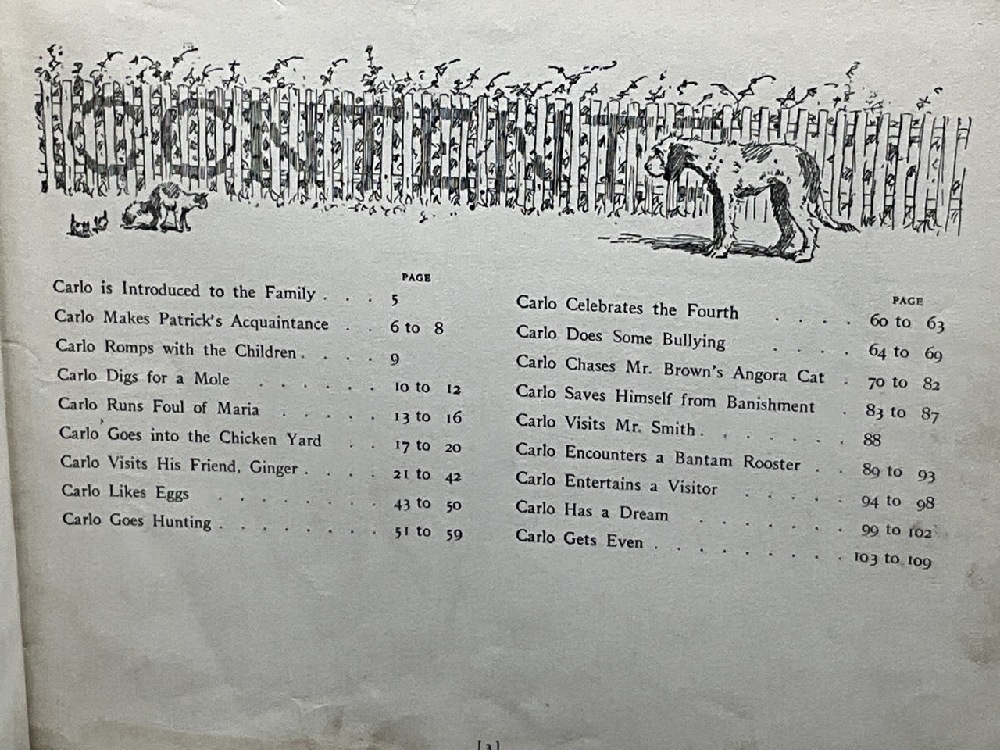 CONTENTS
PAGE
Carlo is Introduced to the Family . . . 5
Carlo Makes Patrick's Acquaintance . . 6 to 8
Carlo Romps with the Children . . . . 9
Carlo Digs for a Mole . . . . . . 10 to 12
Carlo Runs Foul of Maria . . . . . 13 to 16
Carlo Goes into the Chicken Yard . . 17 to 20
Carlo Visits His Friend, Ginger . . . . 21 to 42
Carlo Likes Eggs . . . . . . . 43 to 50
Carlo Goes Hunting . . . . . . . 51 to 59
PAGE
Carlo Celebrates the Fourth . . . . 60 to 63
Carlo Does Some Bullying . . . . 64 to 69
Carlo Chases Mr. Brown's Angora Cat . 70 to 82
Carlo Saves Himself from Banishment . 83 to 87
Carlo Visits Mr. Smith . . . . . . 88
Carlo Encounters a Bantam Rooster . . 89 to 93
Carlo Entertains a Visitor . . . . . 94 to 98
Carlo Has a Dream . . . . . . . 99 to 102
Carlo Gets Even . . . . . . . . . 103 to 109
[3]